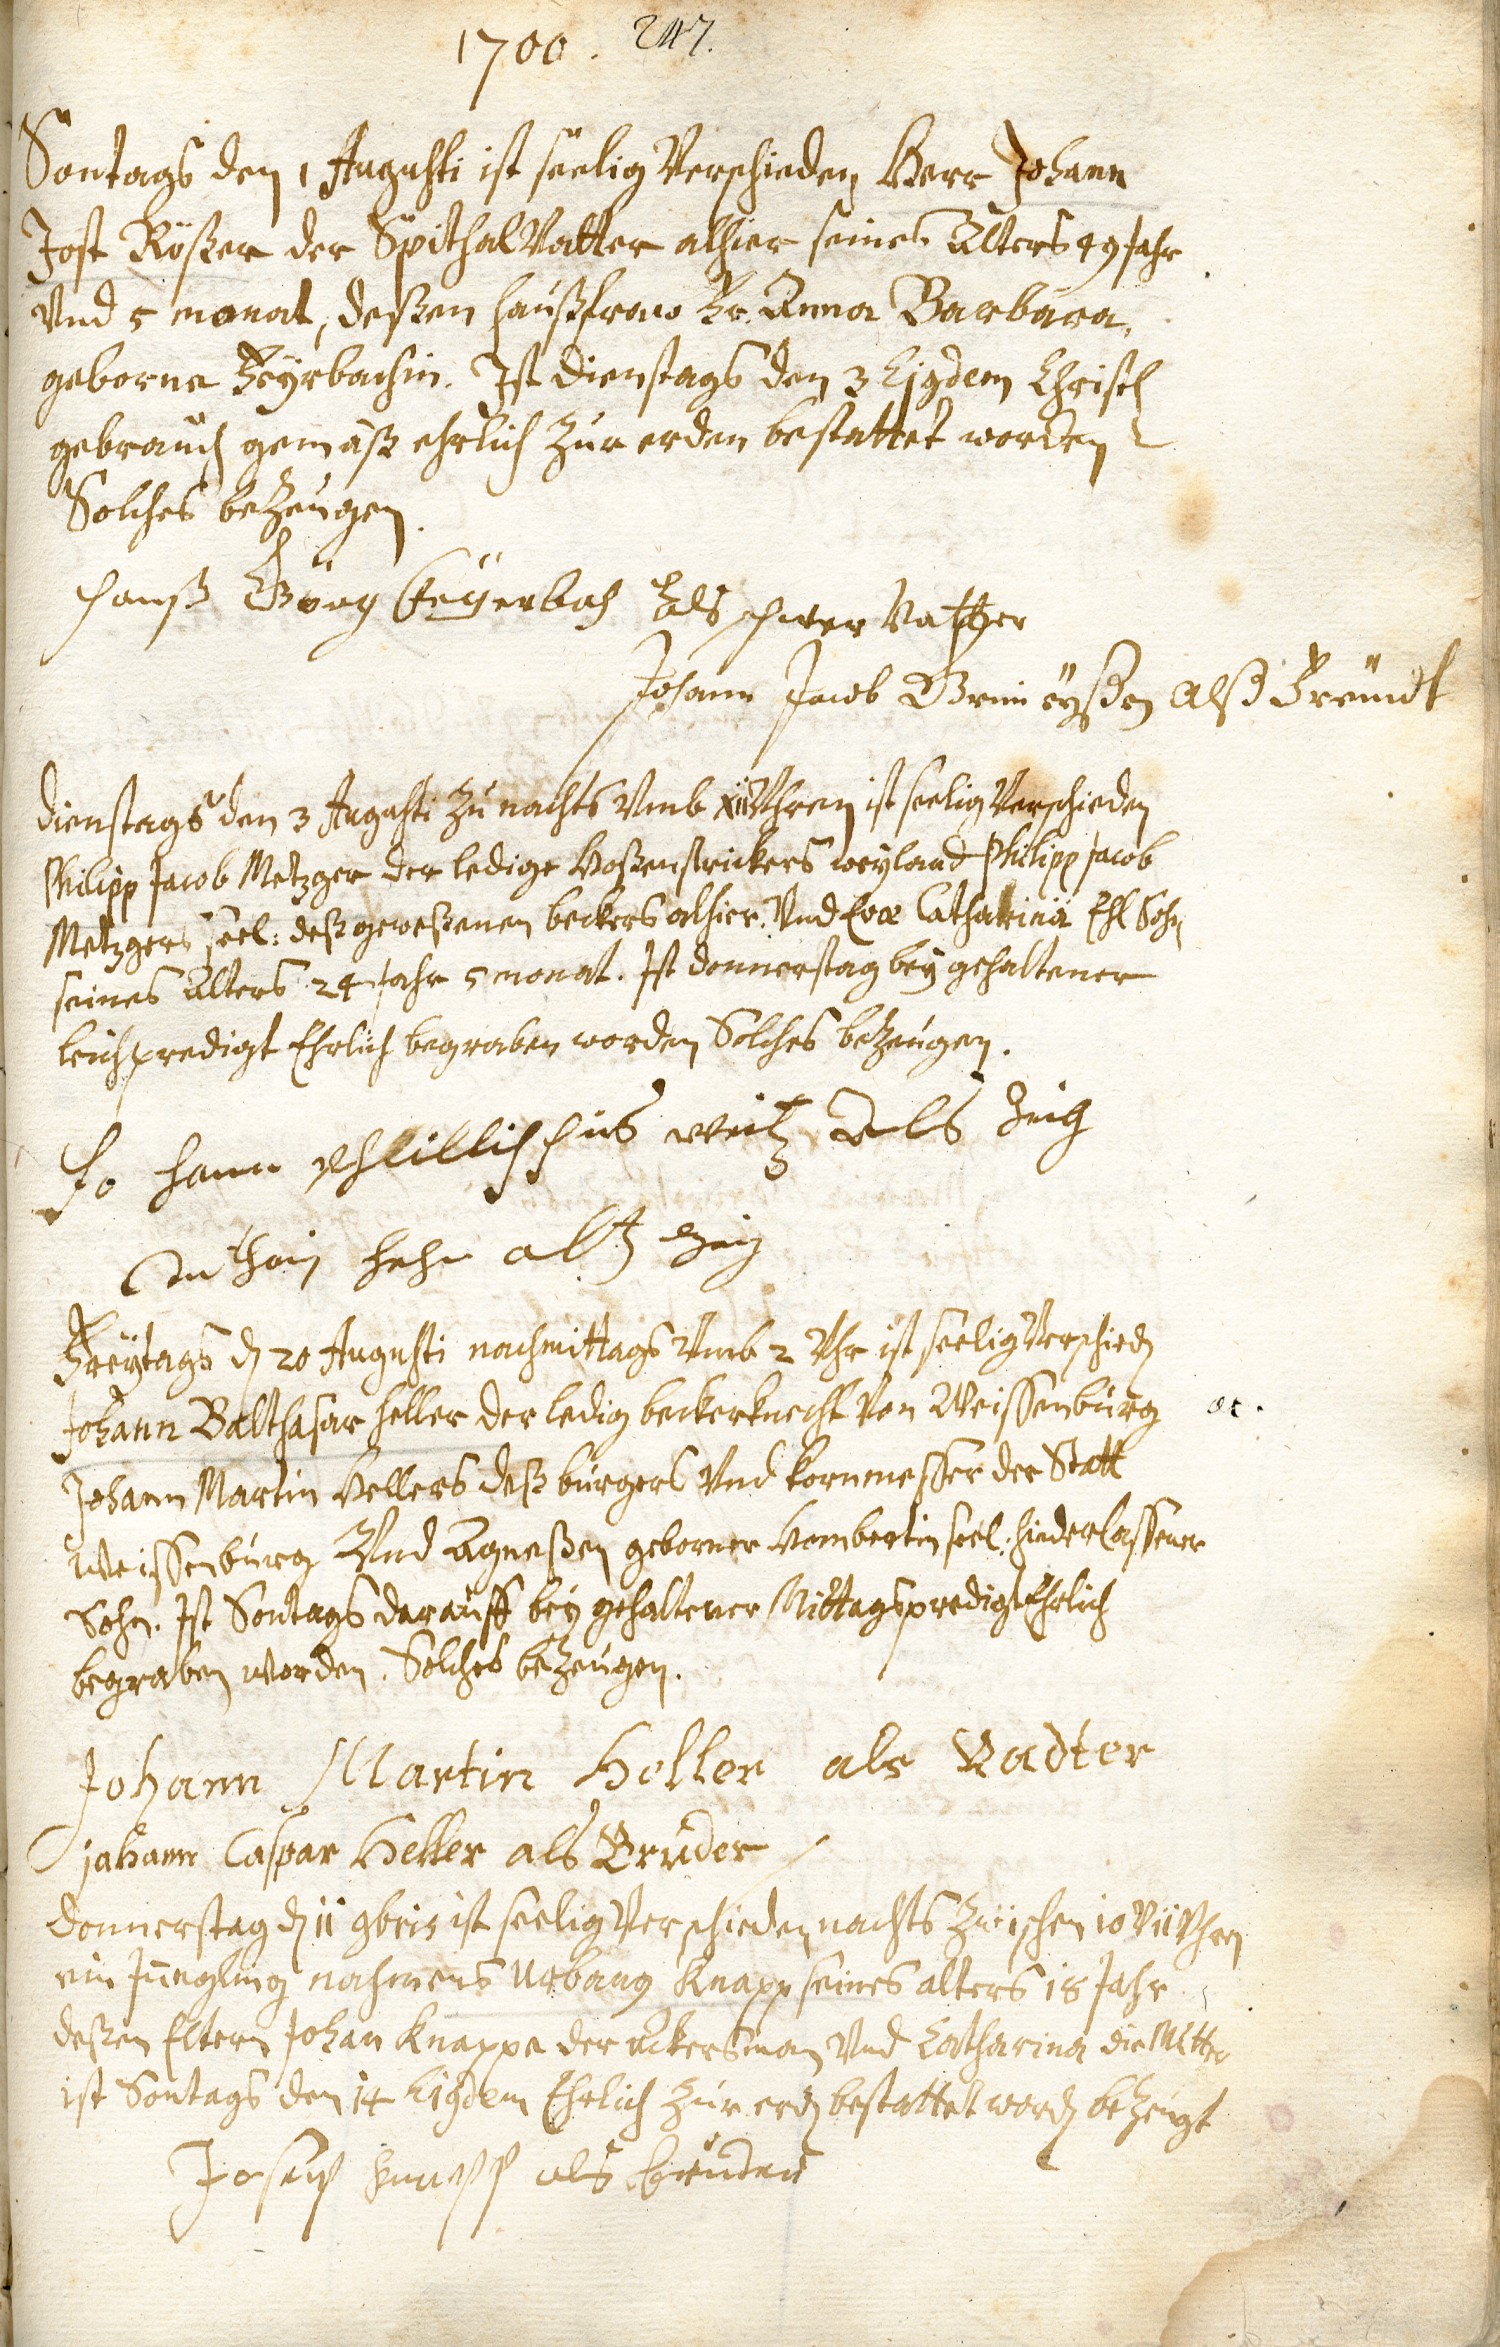 1700. 247.
Sontags den 1 Augusti ist seelig Verschieden Herr Johann
Jost Rößer der SpithalVatter alhier seines Alters 49 Jahr
Vnd 5 monat, deßen haußfraw Fr. Anna Barbara,
geborne Feÿrbachin. Ist dienstags den 3 Ejgdem Christl
gebrauch gemäß ehrlich zur erden bestattet worden
Solches bezeugen.
Hanß Görg Feÿerbach als schwer Vatter
Johann Jacob alß Freündt
Dienstags den 3 Augusti zu nachts Vmb XII Vhren ist seelig Verschieden
Philipp Jacob Metzger der ledige Hoßenstrickers weyland Philipp Jacob
Metzgers seel: deß geweßenen beckers alhier. Vnd Evæ Catharinä Ehl Sohn
seines Alters 24 Jahr 5 monat. Ist donnerstag bey gehaltener
leichpredigt Ehrlich begraben worden Solches bezeugen.
Jo hann als Zeig
hehn alß Zeig
Freÿtags d 20 Augusti nachmittags Vmb 2 Vhr ist seelig Verschied
Johann Balthasar Heller der ledig beckerknecht Von Weissenburg
Johann Martin Hellers deß burgers Vnd kornmesser der Statt
Weissenburg Vnd Agneßen geborner Hombertin seel: hinderlassener
Sohn. Ist Sontags darauff beÿ gehaltener Mittagspredigt Ehrlich
begraben worden. Solches bezeugen.
Johann Martin Heller als Vadter
johann Caspar Heller als Bruder
Donnerstag d 11 9bris ist seelig Verschieden nachts zwischen 10 V 11 Vhren
ein Jüngling nahmens Urbang Knapp seines alters 18 Jahr
deßen Eltern Johan Knappe der Ackersman Vnd Catharina die Mtter
ist Sontags den 14 Ejgdem Ehrlich zur erd bestattet word bezeugt
Joseph Knapp als bruder